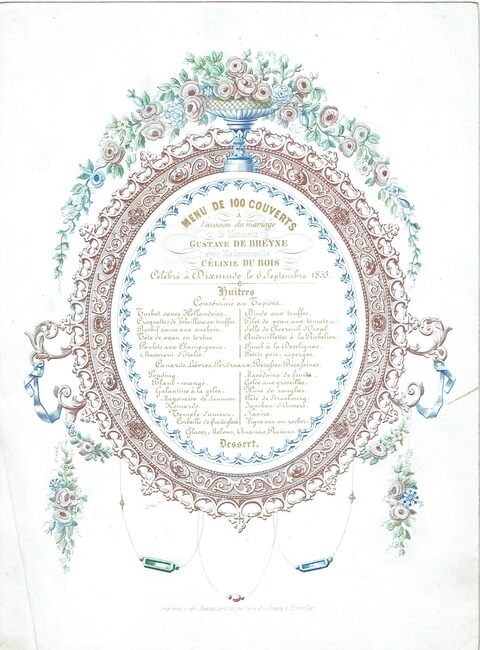 MENU DE 100 COUVERTS
à
l'occasion du mariage
de Monsieur
GUSTAVE DE BREYNE
avec Mademoiselle
CÉLINIE DU BOIS
Célébré à Dixmude le 6 Septembre 1853.
Huîtres
Consommé au Tapioca.
Turbot sauce Hollandaise.
Croquettes de Volaille aux truffes.
Rosbif sauce anchois.
Tête de veau en tortue
Poulets aux Champignons.
Macaroni d'Italie.
Dinde aux truffes.
Filet de veau aux tomates.
Selle de Chevreuil
Andouillettes à la Richelieu.
Petits pois, asperges.
Canards, Lièvres, Perdreaux, Bécasses, Bécassines.
Pouding.
Blanc-mangé.
Galantine à la gelée.
Mayonaise de Saumon.
Homards.
Temple d'amour.
Corbeille de fruits glacés
Macédoine de fruits.
Gelée aux groseilles.
Hure de sanglier.
Pâté de Strasbourg.
Jambon d'Anvers.
Navire.
Vigne sur un rocher.
Glaces, Melons, Ananas, Raisins
Dessert.